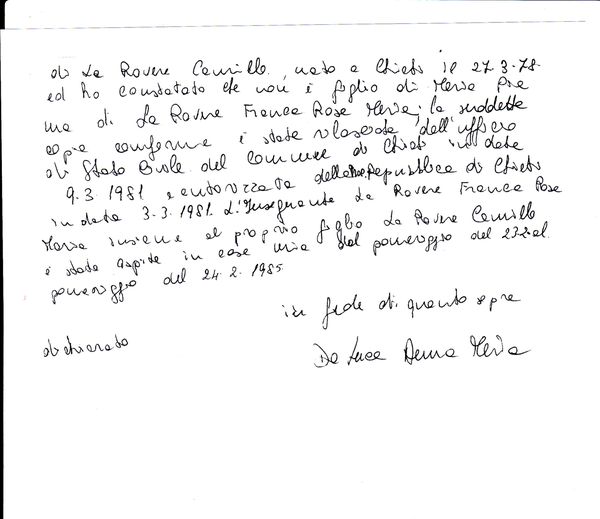 di La Rovere Camillo, nato a Chieti il 27-3-78.
ed ho constatato che non è figlio di Maria Pia
ma di La Rovere Franca Rosa Maria; la suddetta
copia conforme è stata rilasciata dell'ufficio
di Stato Civile del Comune di Chieti in data
9.3.1981 e autorizzata della Repubblica di Chieti
in data 3-3-1981. L'Insegnante La Rovere Franca Rosa
Maria insieme al proprio figlio La Rovere Camillo
è stata ospite in casa mia dal pomeriggio del 23.2 al
pomeriggio del 24.2.1985
in fede di quanto sopra
dichiarato
De Luca Anna Maria